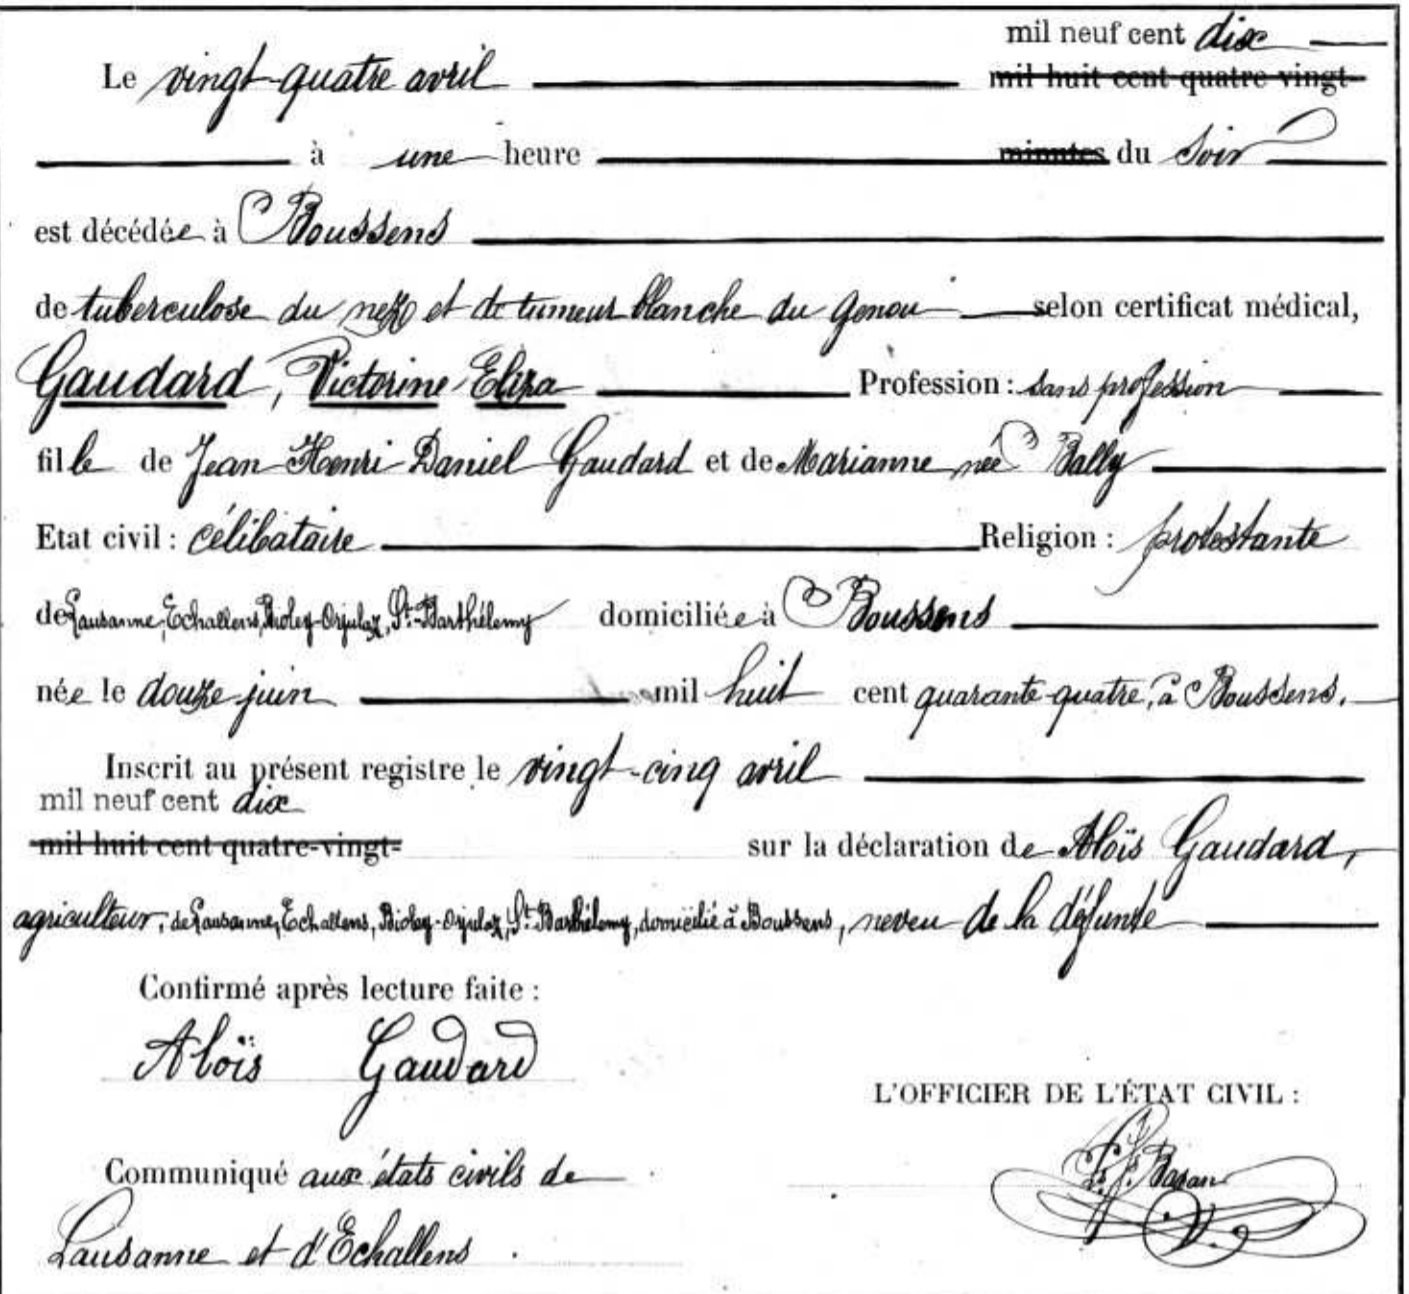 mil neuf cent dix
Le vingt-quatre avril mil huit cent quatre-vingt-
à une heure minutes du soir
est décédée à Boussens
de tuberculose du nez et de tumeur blanche du genou selon certificat médical,
Gaudard, Victorine Eliza Profession : sans profession
fille de Jean-Henri-Daniel Gaudard et de Marianne née Bally
Etat civil : célibataire Religion : protestante
de Lausanne, Echallens, Bioley-Orjulaz, St-Barthélemy domiciliée à Boussens
née le douze juin mil huit cent quarante-quatre, à Boussens.
Inscrit au présent registre le vingt-cinq avril
mil neuf cent dix
mil huit cent quatre-vingt- sur la déclaration de Aloïs Gaudard,
agriculteur, de Lausanne, Echallens, Bioley-Orjulaz, St-Barthélemy, domicilié à Boussens, neveu de la défunte
Confirmé après lecture faite :
Aloïs Gaudard
L'OFFICIER DE L'ÉTAT CIVIL :
Communiqué aux états civils de
Lausanne et d'Echallens